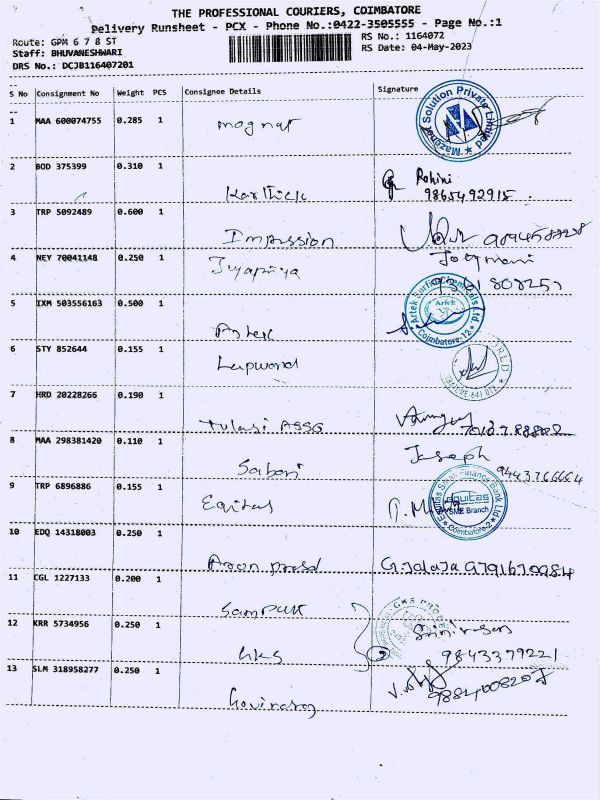 THE PROFESSIONAL COURIERS, COIMBATORE
Delivery Runsheet - PCX - Phone No.:0422-3505555 - Page No.:1
Route: GPM 6 7 8 ST
Staff: BHUVANESHWARI
DRS No.: DCJB116407201
RS No.: 1164072
RS Date: 04-May-2023
S No Consignment No Weight PCS Consignee Details Signature
1 MAA 600074755 0.285 1 mognat
Mazenet Solution Private Limited
2 BOD 375399 0.310 1 Karthick Rohini
9865492915
3 TRP 5092489 0.600 1 Impression
4 NEY 70041148 0.250 1 Jyapriya Jotymani
5 IXM 503556163 0.500 1 Artek
Artek Surfin Chemicals Ltd Coimbatore-12
6 STY 852644 0.155 1
7 HRD 20228266 0.190 1 Tulasi ASSG
8 MAA 298381420 0.110 1 Sabari Joseph
9443766664
9 TRP 6896886 0.155 1 Eqitas
Equitas Small Finance Bank Ltd equitas SME Branch Coimbatore-2
10 EDQ 14318003 0.250 1 G.Jalaja 9791670984
11 CGL 1227133 0.200 1 Sampath
12 KRR 5734956 0.250 1 GKS Srinivasan
9843379221
13 SLM 318958277 0.250 1 Govinraj
9884008207